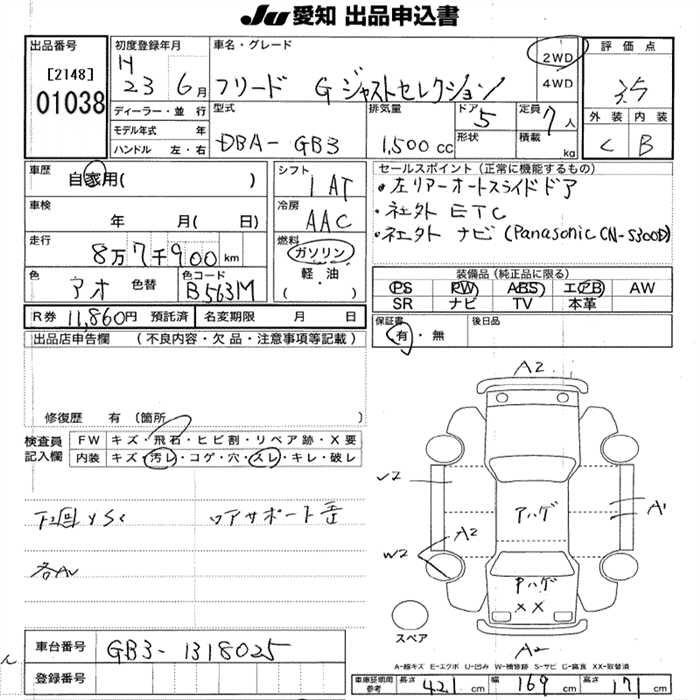 JU 愛知 出品申込書
出品番号
[2148]
01038
初度登録年月
H 23 6月
車名・グレード
フリード G ジャストセレクション
2WD
4WD
評価点
3.5
外装 内装
C B
ディーラー・並行
モデル年式 年
ハンドル 左・右
型式
DBA-GB3
排気量
1,500 cc
ドア 5
形状
定員 7人
積載 kg
車歴
自家用( )
車検
年 月( 日)
走行
8万7千900 km
色
アオ 色替
色コード
B563M
シフト
IAT
冷房
AAC
燃料
ガソリン
軽・油
( )
セールスポイント(正常に機能するもの)
・左リアーオートスライドドア
・社外 ETC
・社外 ナビ(Panasonic CN-S300D)
装備品(純正品に限る)
PS PW ABS エアB AW
SR ナビ TV 本革
R券 11,860円 預託済 名変期限 月 日
保証書
有・無
後日品
出品店申告欄 (不良内容・欠品・注意事項等記載)
修復歴 有(箇所 )
検査員
記入欄
FW キズ・飛石・ヒビ割・リペア跡・X要
内装 キズ・汚レ・コゲ・穴・スレ・キレ・破レ
下回りSc
A2
√2
アハゲ
A1
A2
W2
Pハゲ
XX
スペア
A2
車台番号 GB3-1318025
登録番号
A-線キズ E-エクボ U-凹み W-補修跡 S-サビ C-腐食 XX-取替済
車庫証明用
参考
長さ 421 cm 幅 169 cm 高さ 171 cm